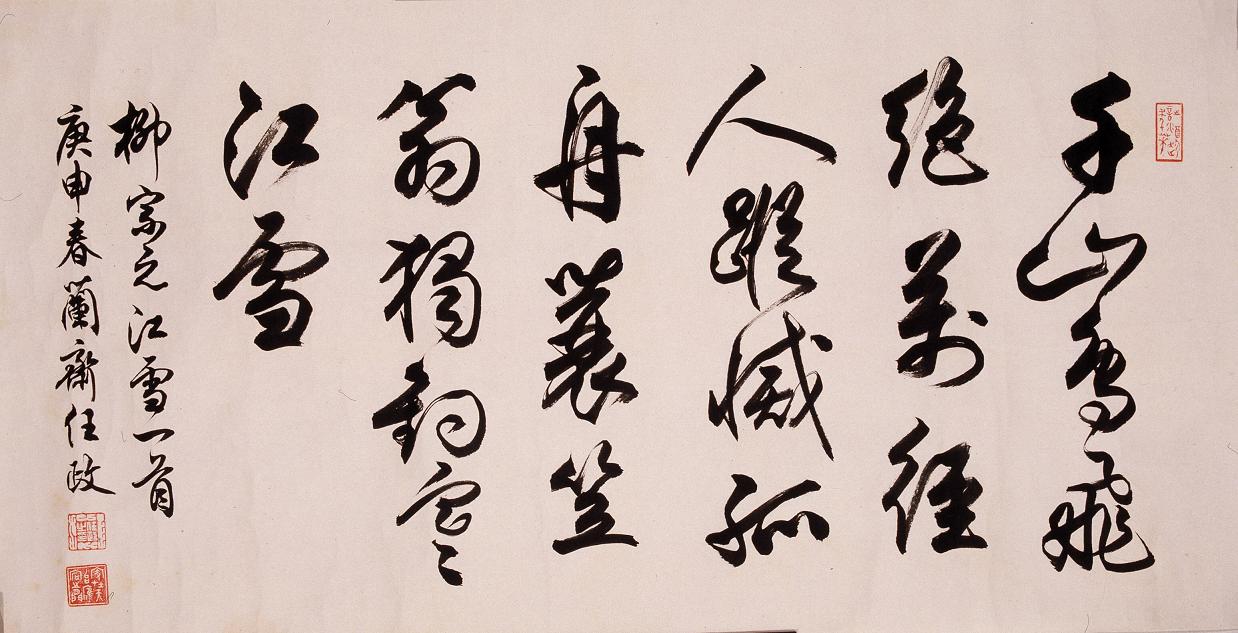 千山鳥飛
絕萬徑
人蹤滅孤
舟蓑笠
翁獨釣寒
江雪
柳宗元江雪一首
庚申春蘭齋任政